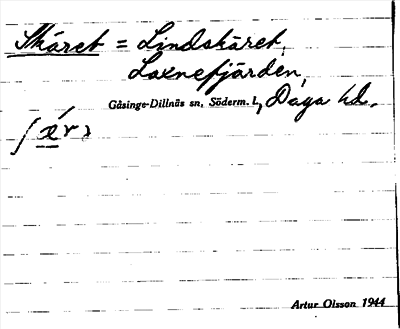 Skäret = Lindskäret,
Laxnefjärden,
Gåsinge-Dillnäs sn, Söderm. l, Daga hd.
Artur Olsson 1944